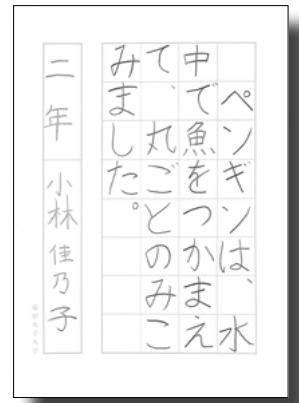 ペンギンは、水
中で魚をつかまえ
て、丸ごとのみこ
みました。
二年 小林佳乃子